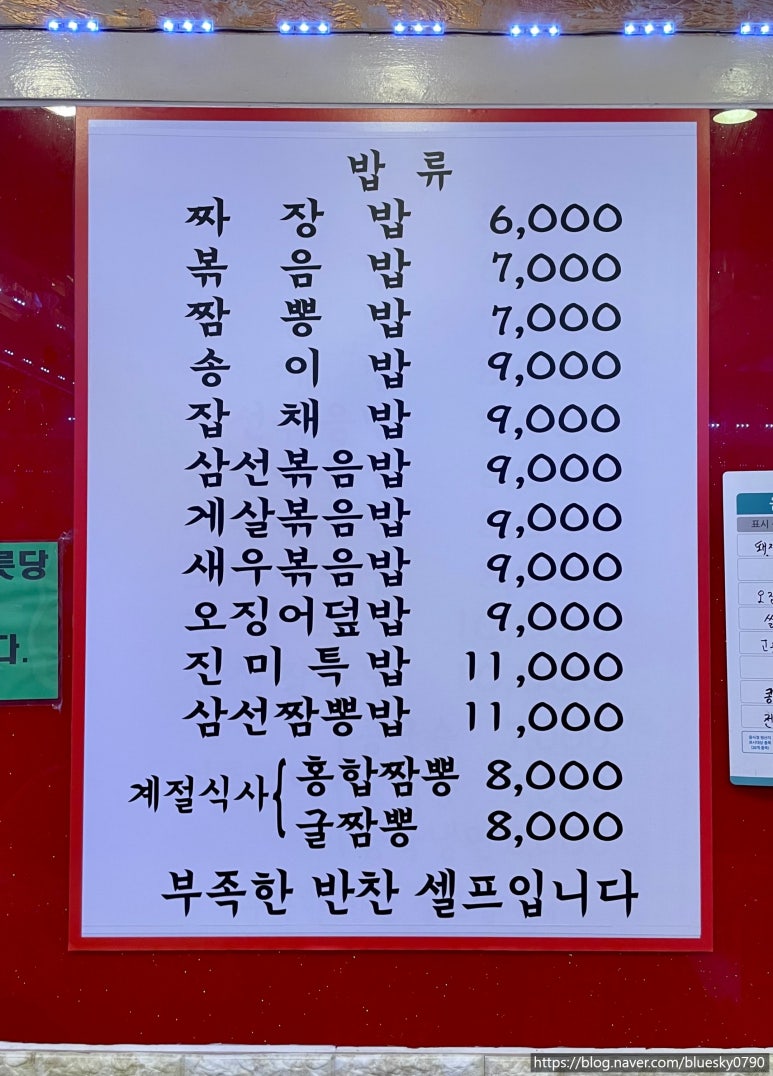 밥 류
짜 장 밥 6,000
볶 음 밥 7,000
짬 뽕 밥 7,000
송 이 밥 9,000
잡 채 밥 9,000
삼선볶음밥 9,000
게살볶음밥 9,000
새우볶음밥 9,000
오징어덮밥 9,000
진 미 특 밥 11,000
삼선짬뽕밥 11,000
계절식사{
홍합짬뽕 8,000
굴짬뽕 8,000
부족한 반찬 셀프입니다
릇당
다.
표시
https://blog.naver.com/bluesky0790